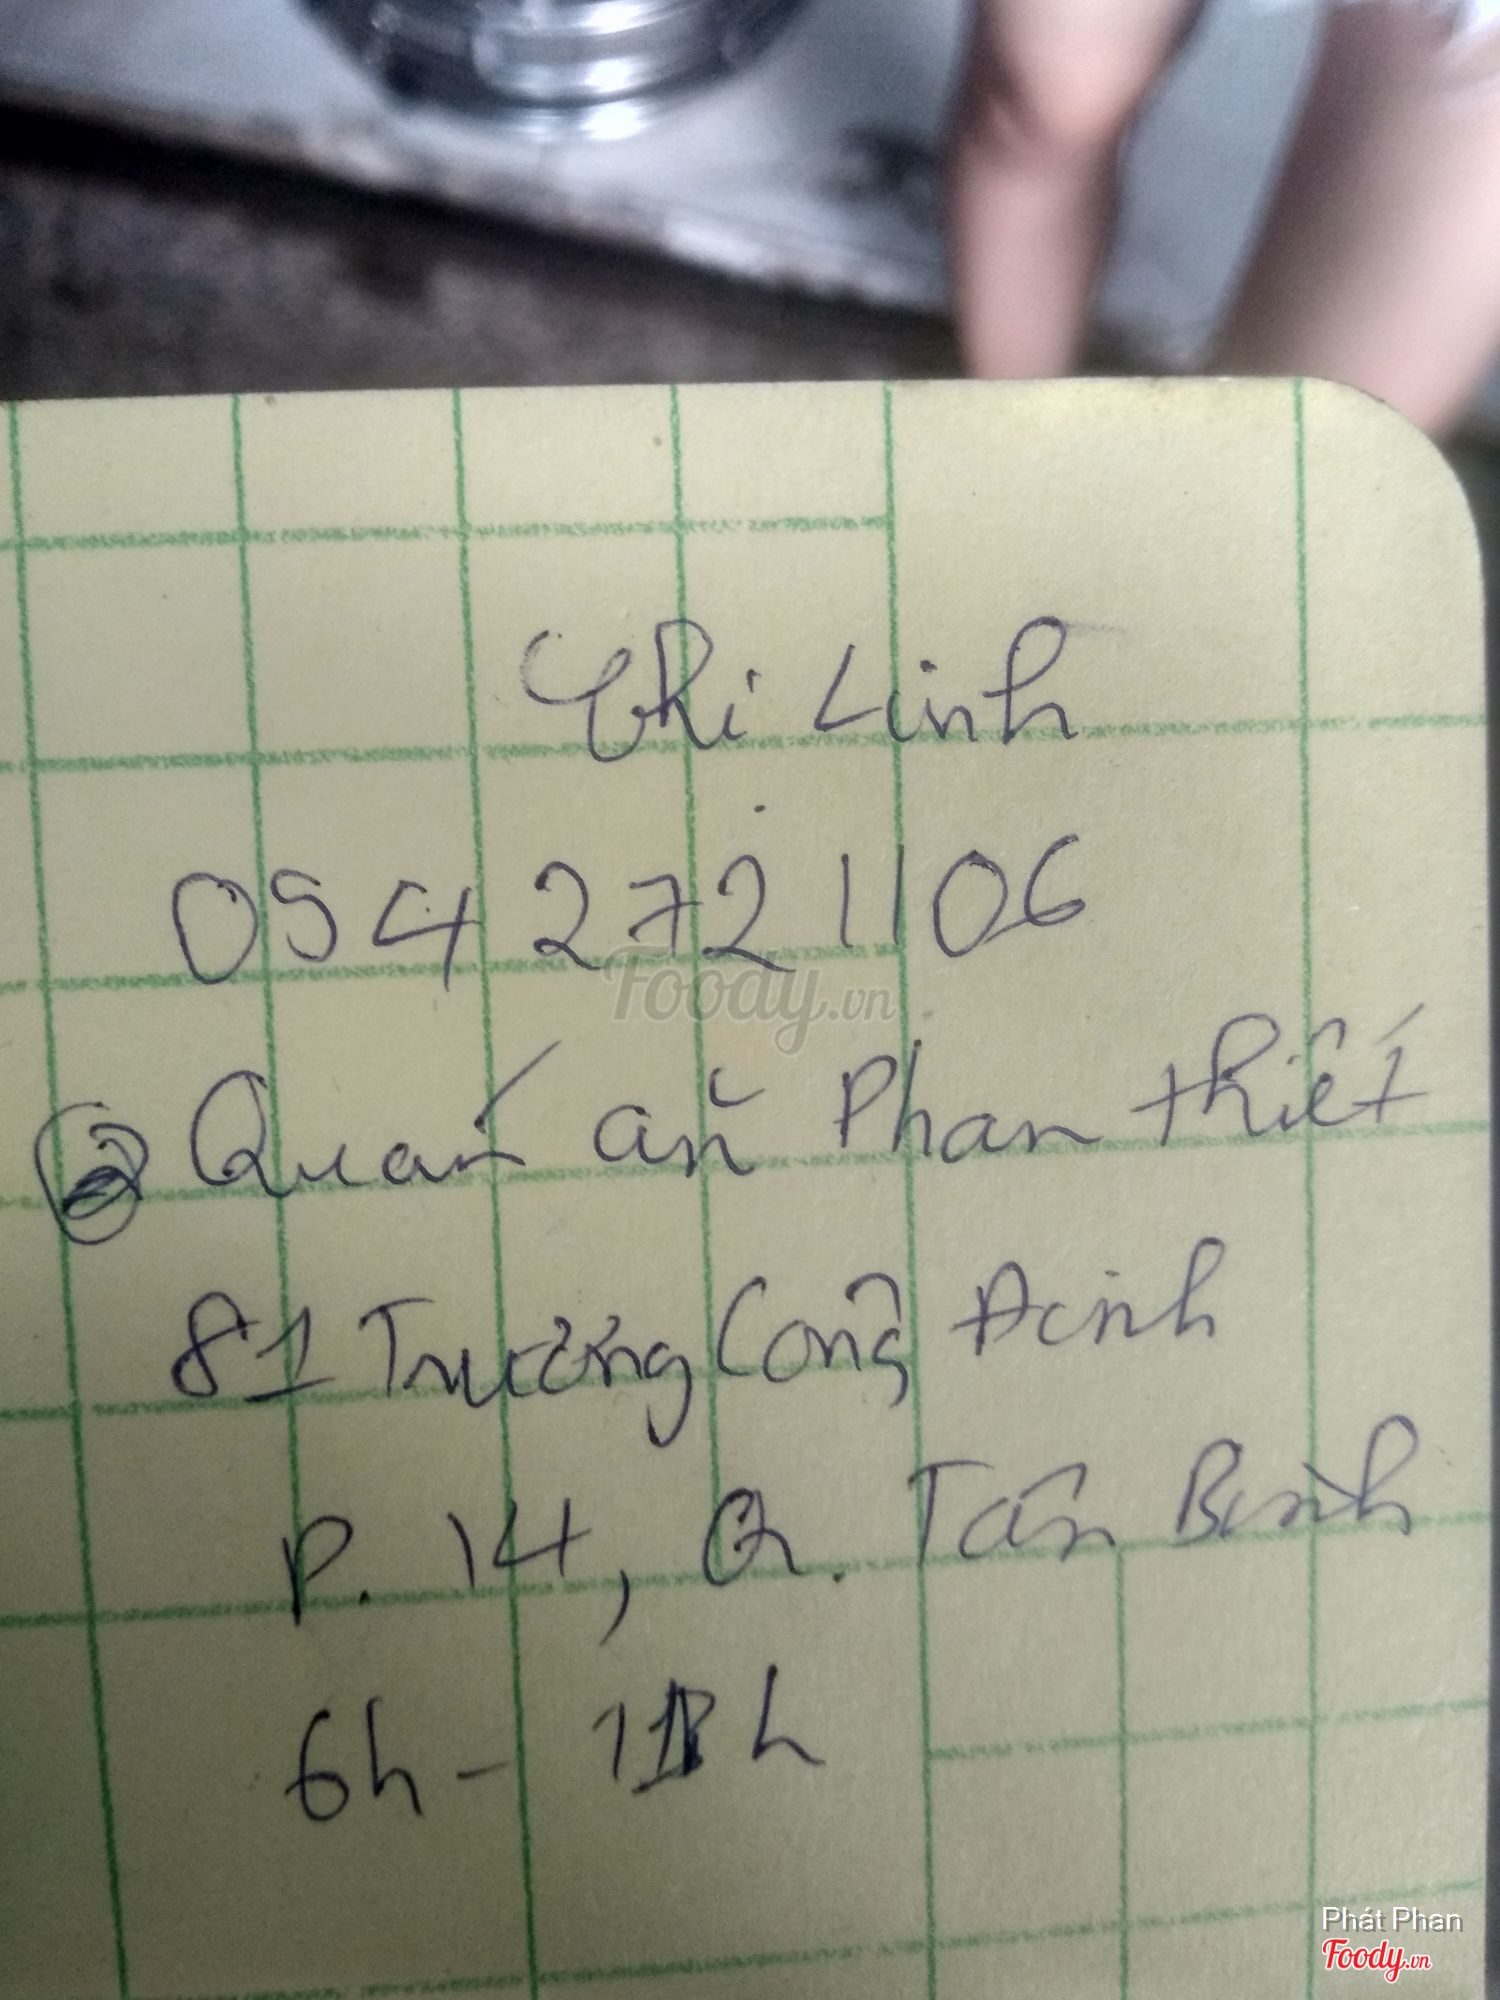 Chi Linh
054 272 1106
Quán ăn Phan thiết
81 Trương Công Định
P. 14, Q. Tân Bình
6h - h
Foody.vn
Phát Phan
Foody.vn